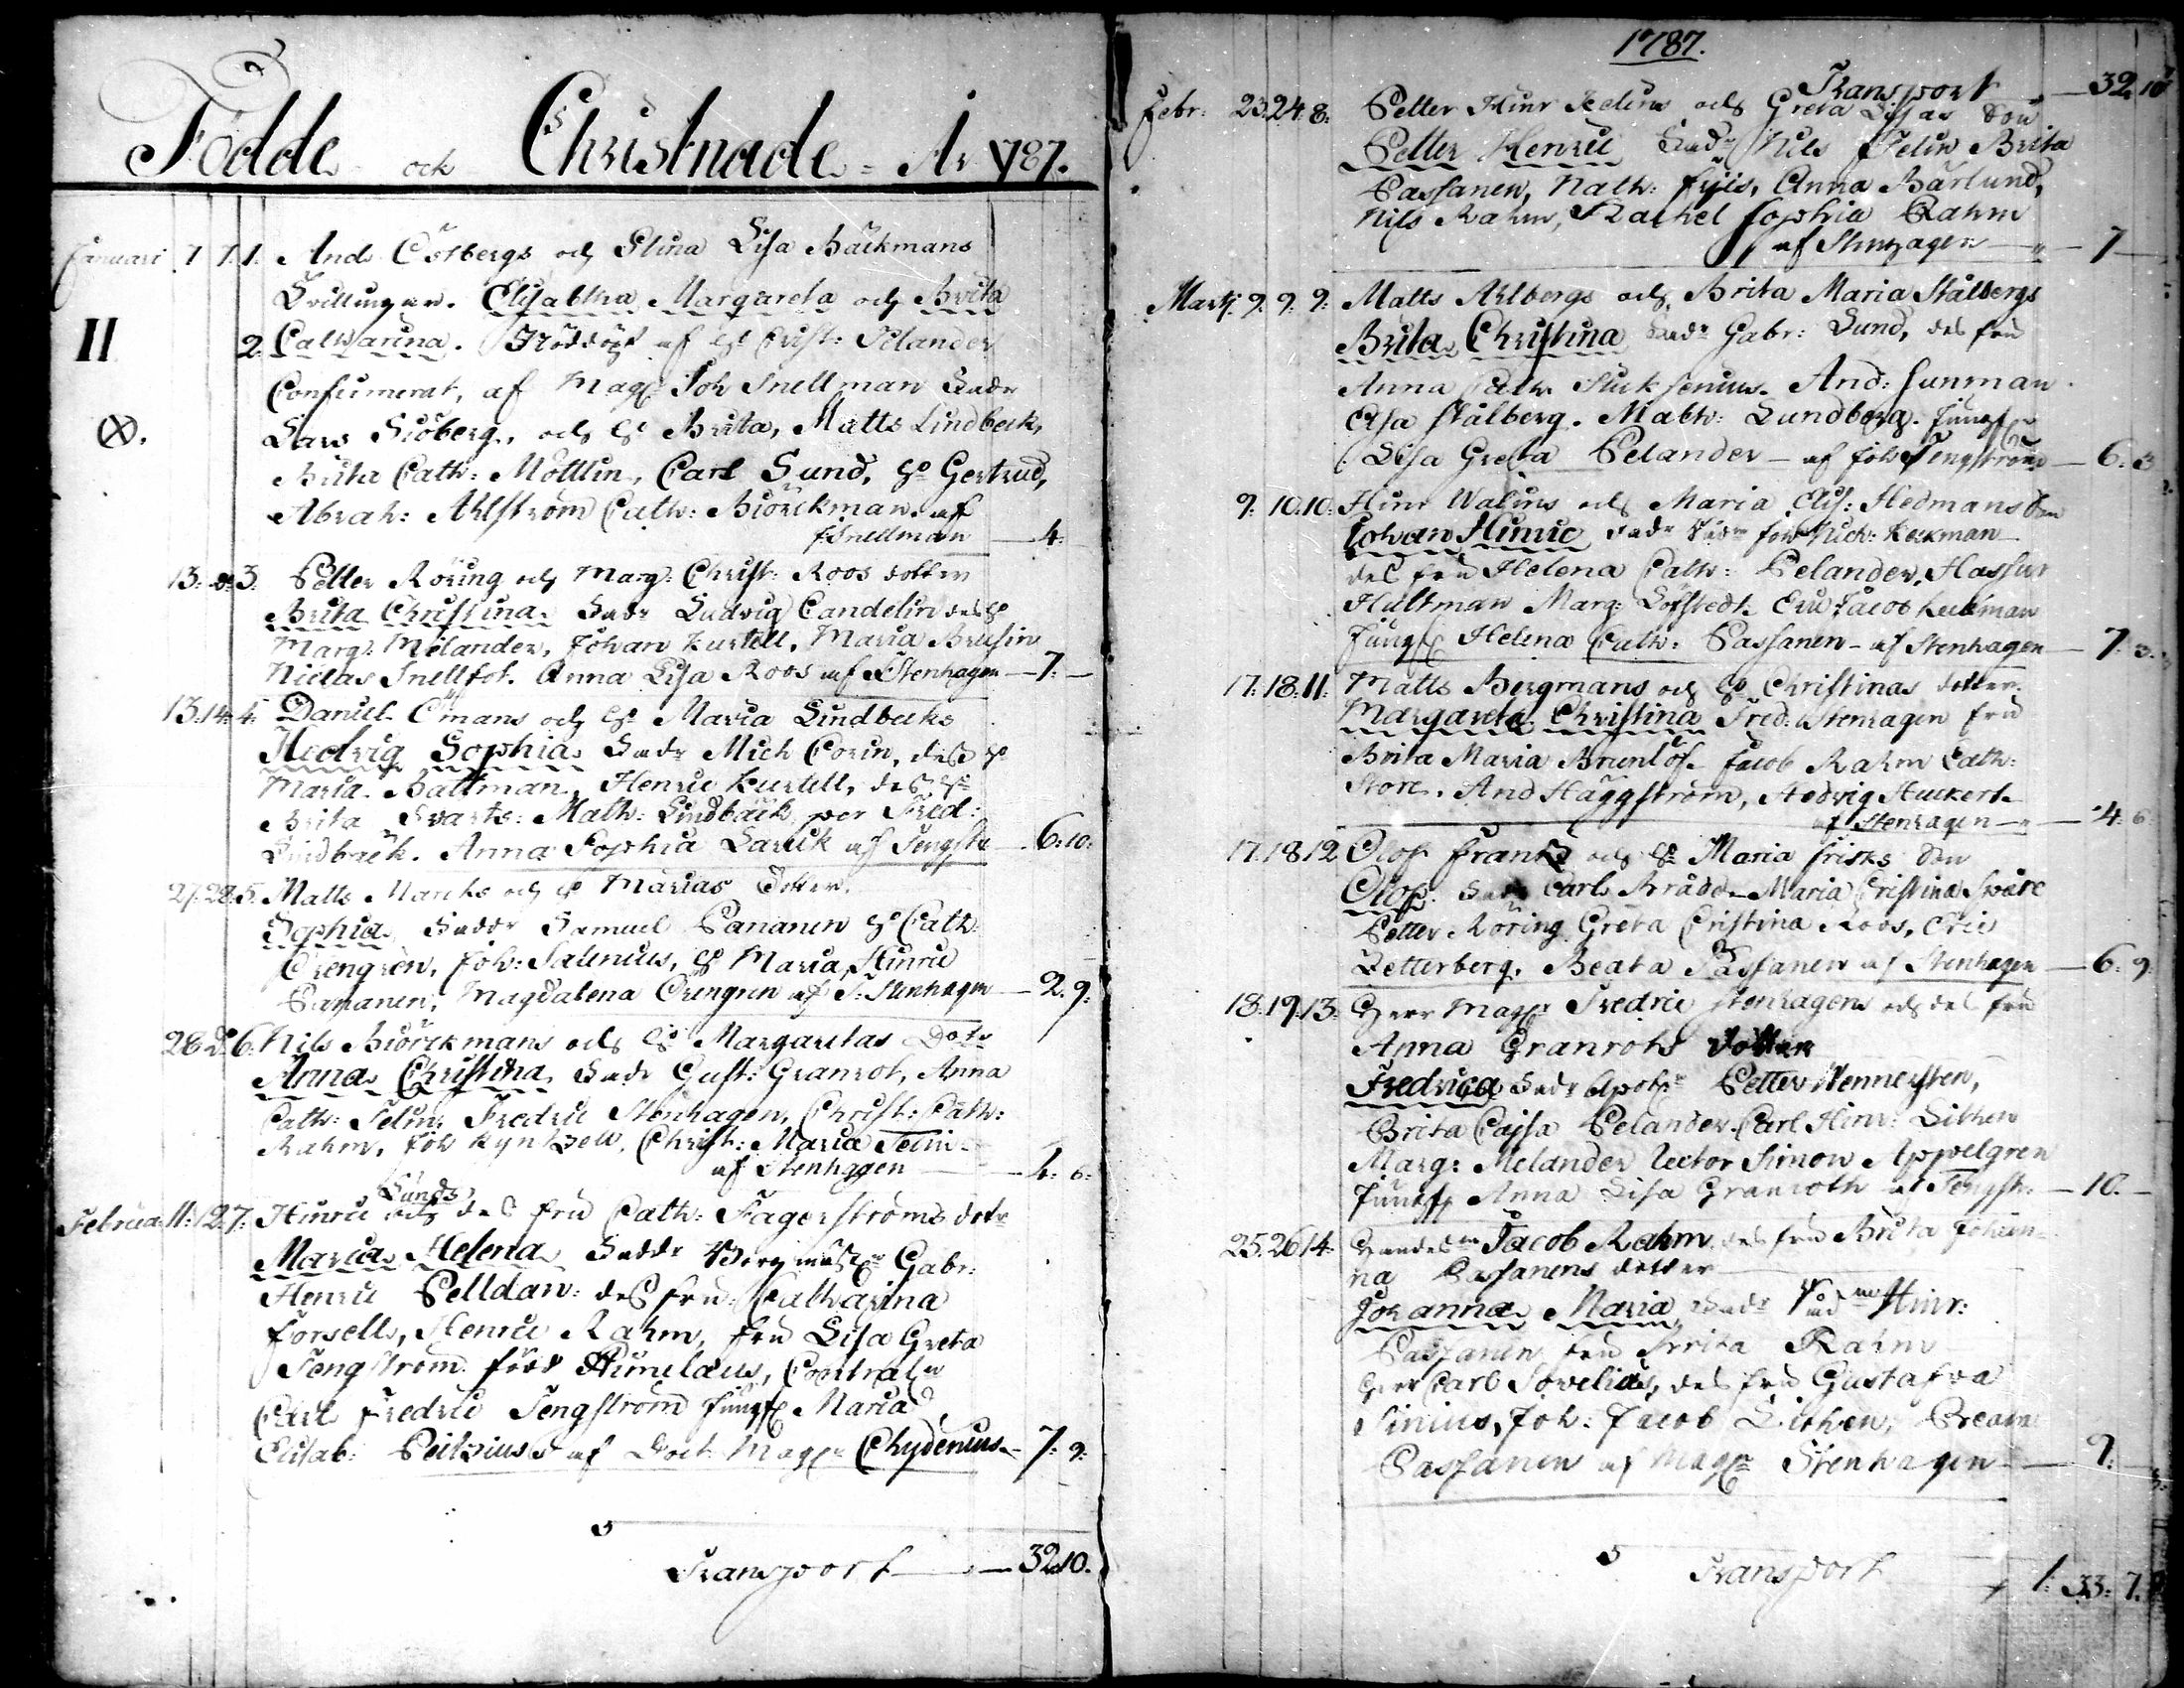 Födde och Christnade År 1787.
Januari 7 7. 1. And. Östbergs och Stina Lisa Bäckmans
Tvillingar. Elisabtha Margareta och Brita
II
2. Catharina. Nöddöpt af h: Christ: Pelander
Confirmerat, af Mag: Joh Snellman Fadr
Lars Siöberg, och h: Brita, Matts Lindbeck,
Brita Cath: Möttlin, Carl Lund, h: Gertrud,
Abrah: Ahlström Cath: Biörckman. af
Snellman — 4.
13: d: 3. Petter Röring och Marg: Christ: Roos dotter
Brita Christina. Fadr Ludvig Candelin des h:
Marg: Melander, Johan Kurtell, Maria Brusin
Niclas Snellfot. Anna Lisa Roos af Stenhagen — 7. —
13. 14. 4. Daniel Ömans och h: Maria Lindbecks
Hedvig Sophia. Fadr Mich Corin, des h:
Maria Battman, Henric Kurtell, des h:
Brita Svarts: Math: Lindbäck, por Fred:
Lindbäck. Anna Sophia Larick af Tengstr — 6: 10:
27. 28. 5. Matts Marcks och h: Marias Dotter.
Sophia. Faddr Samuel Pananen h: Cath
Orengren, Joh: Salenius, h: Maria, Hinric
Pananen, Magdalena Orengren af F: Stenhagen — 2. 9:
28 d: 6. Nils Biörckmans och h: Margaretas Dotr
Anna Christina. Fadr Gust: Granrot, Anna
Cath: Telin, Fredric Stenhagen, Christ: Cath:
Rahm, Joh Kyntzell, Christ: Maria Telin
af Stenhagen — 4: 6:
Lunds
Februari 11: 12. 7: Hinric och des fru Cath: Fagerströms dotr
Maria Helena Faddr Borgmästr Gabr:
Henric Pelldan: des fru: Catharina
Forsell, Henric Rahm, fru Lisa Greta
Tengström född Himelæus, Contralr
Carl Fredric Tengström Jungf: Maria
Elisab: Peitzius af Doct: Mag: Chydenius — 7: 9:
Transport — 32. 10.
1787.
Transport — 32. 10
Febr: 23: 24: 8: Petter Hinr Telins och Greta Lisas Son
Petter Henric Fadr Nils Telin Brita
Passanen, Math: Frjis, Anna Barlund,
Nils Rahm, Rachel Sophia Rahm
af Stenhagen — 7 —
Martj. 9. 9: 9: Matts Ahlbergs och Brita Maria Stålbergs
Brita Christina Fadr Gabr: Lund, des fru
Anna Cath. And: Sunman
Cajsa Stålberg. Math: Lundberg. Jungfr
Lisa Greta Pelander — af Joh Tengström — 6: 3
9: 10. 10: Hinr Walins och Maria Elis: Hedmans Son
Johan Hinric Fadr Joh Mich: Keckman
des fru Helena Cath: Pelander, Hassur
Hultman Marg: Löfstedt Eric Jacob Keckman
Jungf: Helena Cath: Passanen — af Stenhagen — 7: 3.
17: 18: 11: Matts Bergmans och h: Christinas dotter
Margareta Christina Fred: Stenhagen fru
Brita Maria Brunlöf. Jacob Rahm Cath:
Store. And Häggström, Hedvig Stuckert
af Stenhagen — 4: 6:
17. 18 12 Olof Frants och h: Maria Frisks Son
Olof. Fadr Carl Brådd Maria Christina Sväre
Petter Röring Greta Christina Roos, Eric
Zetterberg. Beata Passanen af Stenhagen — 6: 9:
18. 19. 13: Herr Mag: Fredric Stenhagens och des fru
Anna Granroths Dotter
Fredrica Fadr Apoth: Petter Wennersten,
Brita Cajsa Pelander. Carl Hinr: Lithen
Marg: Melander Rector Simon Appelgren
Jungf: Anna Lisa Granroth af Tengstr: — 10. —
25. 26 14: Jacob Rahm des fru Brita Johan-
na Passanens dotter
Johanna Maria Fadr Hinr:
Passanen fru Brita Rahm
Herr Carl Sovelius, des fru Gustafva
Sinius, Joh: Jacob Lithen, Beata
Passanen af Mag: Stenhagen — 9: —
Transport 1: 33: 7.